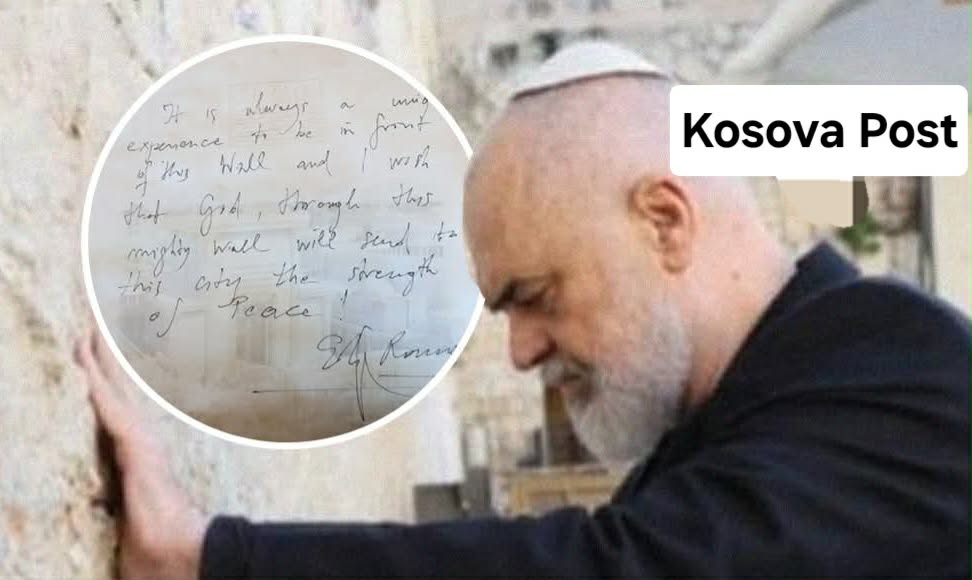 Kosova Post
It is always a uniq
experience to be in front
of this Wall and I wish
that God, through this
mighty wall will send to
this city the strength
of Peace!